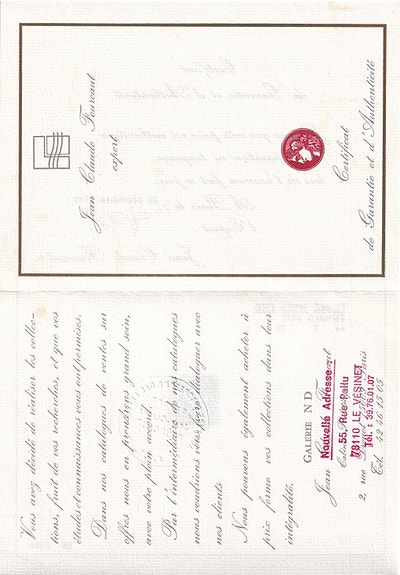 Vous avez décidé de réaliser les collec-
tions, fruit de vos recherches, et que vos
études et connaissances vous ont permises.
Dans nos catalogues de ventes sur
offres nous en prendrons grand soin,
avec votre plein accord.
Par l'intermédiaire de nos catalogues
nous voudrions vous faire dialoguer avec
nos clients
Nous pouvons également acheter à
prix ferme vos collections dans leur
intégralité.
GALERIE N D
Jean
Nouvelle Adresse
55, Rue Pallu
78110 LE VESINET
Tél. : 39.76.01.07
2, rue Paris
Tél.
Jean Claude Fourcaut
expert
Certificat
de Garantie et d'Authenticité